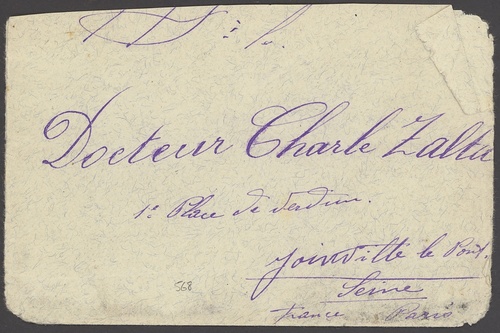 Docteur Charle Zaltu
1e Place de Verdun.
Joinville le Pont.
Seine
France Paris
568